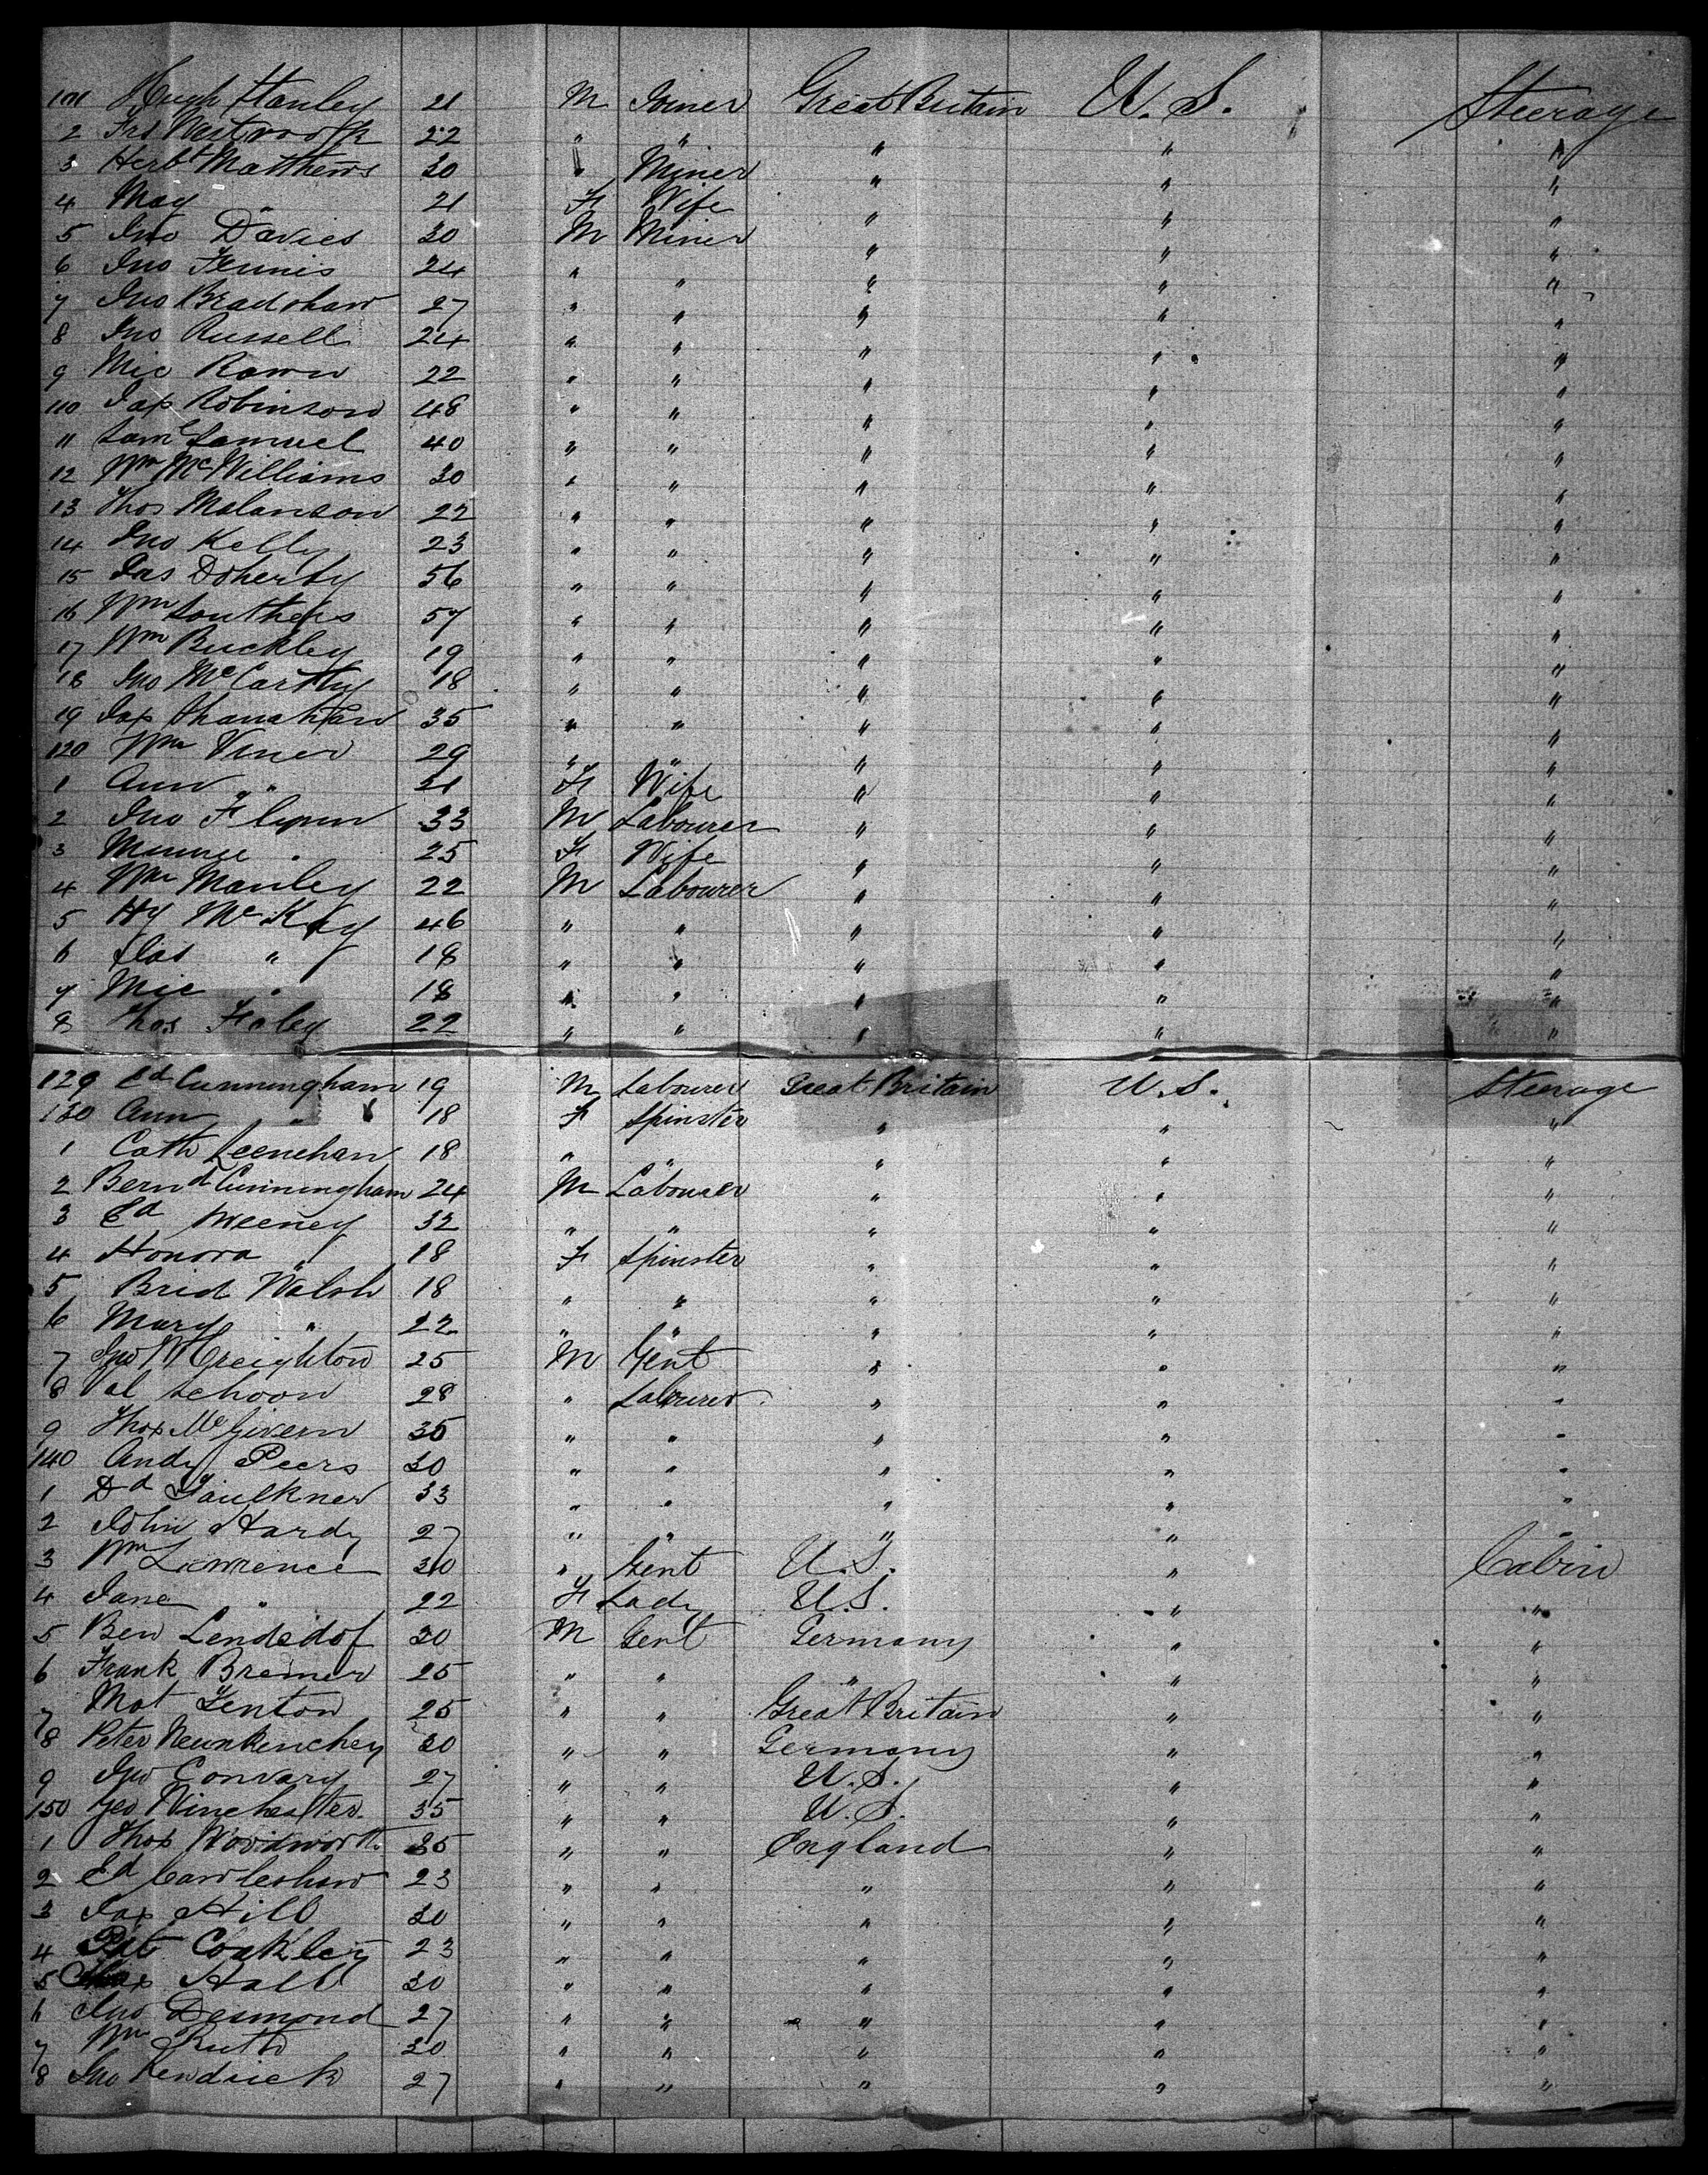 101 Hugh Hanley 21 M Joiner Great Britain U. S. Steerage
2 Frs 22 " " " " "
3 Herbt Matthews 30 " Miner " " "
4 May " 21 F Wife " " "
5 Jno Davies 30 M Miner " " "
6 Jno Fennis 24 " " " " "
7 Jno Bradshaw 27 " " " " "
8 Jno Russell 24 " " " " "
9 Mic 22 " " " " "
110 Jas Robinson 48 " " " " "
11 Saml Samuel 40 " " " " "
12 Wm McWilliams 30 " " " " "
13 Thos Melanson 22 " " " " "
14 Jno Kelly 23 " " " " "
15 Jas Doherty 56 " " " " "
16 Wm Southers 57 " " " " "
17 Wm Buckley 19 " " " " "
18 Jno McCarthy 18 " " " " "
19 Jas Shanahan 35 " " " " "
120 Wm Viner 29 " " " " "
1 Ann " 21 F Wife " " "
2 Jno Flynn 33 M Labourer " " "
3 " 25 F Wife " " "
4 Wm Manley 22 M Labourer " " "
5 Hy McKay 46 " " " " "
6 " 18 " " " " "
7 Mic " 18 " " " " "
8 Thos Foley 22 " " " " "
129 Ed Cunningham 19 M Labourer Great Britain U. S. Steerage
130 Ann " 18 F Spinster " " "
1 Cath Leenehan 18 " " " " "
2 Bernd Cunningham 24 M Labourer " " "
3 Ed 32 " " " " "
4 Honora " 18 F Spinster " " "
5 Brid Walsh 18 " " " " "
6 Mary " 22 " " " " "
7 Jno 25 M Gent " " "
8 Val Schoon 28 " Labourer " " "
9 Thos McGivern 35 " " " " "
140 Andy Peers 30 " " " " "
1 Dd Faulkner 33 " " " " "
2 John Hardy 27 " " " " "
3 Wm Lawrence 30 " Gent U. S. " Cabin
4 Jane " 22 F Lady U. S. " "
5 Ben Lendsdof 30 M Gent Germany " "
6 Frank Bremer 25 " " " " "
7 Mat Fenton 25 " " Great Britain " "
8 Peter 30 " " Germany " "
9 Jno Convary 27 " " U. S. " "
150 Geo Winchester 35 " " U. S. " "
1 Thos Woodworth 35 " " England " "
2 Ed 23 " " " " "
3 Jas Hill 30 " " " " "
4 Pat Coakley 23 " " " " "
5 Hall 30 " " " " "
6 Jno Desmond 27 " " " " "
7 Wm Ruth 30 " " " " "
8 Jno Kendrick 27 " " " " "